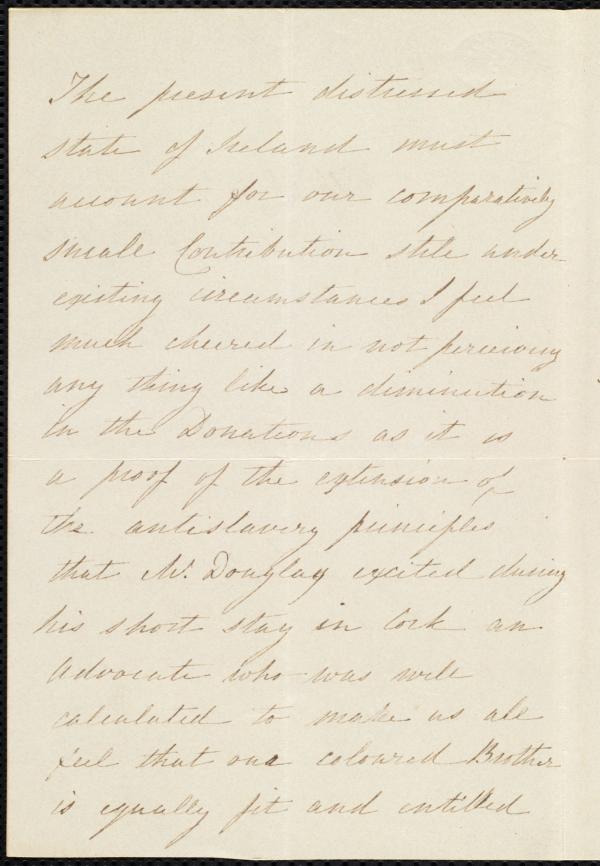 The present distressed
state of Ireland must
account for our comparatively
small Contribution still under
existing circumstances I feel
much cheered in not perceiving
any thing like a diminution
in the Donations as it is
a proof of the extension of
the antislavery principles
that Mr. Douglas excited during
his short stay in Cork an
Advocate who was well
calculated to make us all
feel that our coloured Brother
is equally fit and entitled